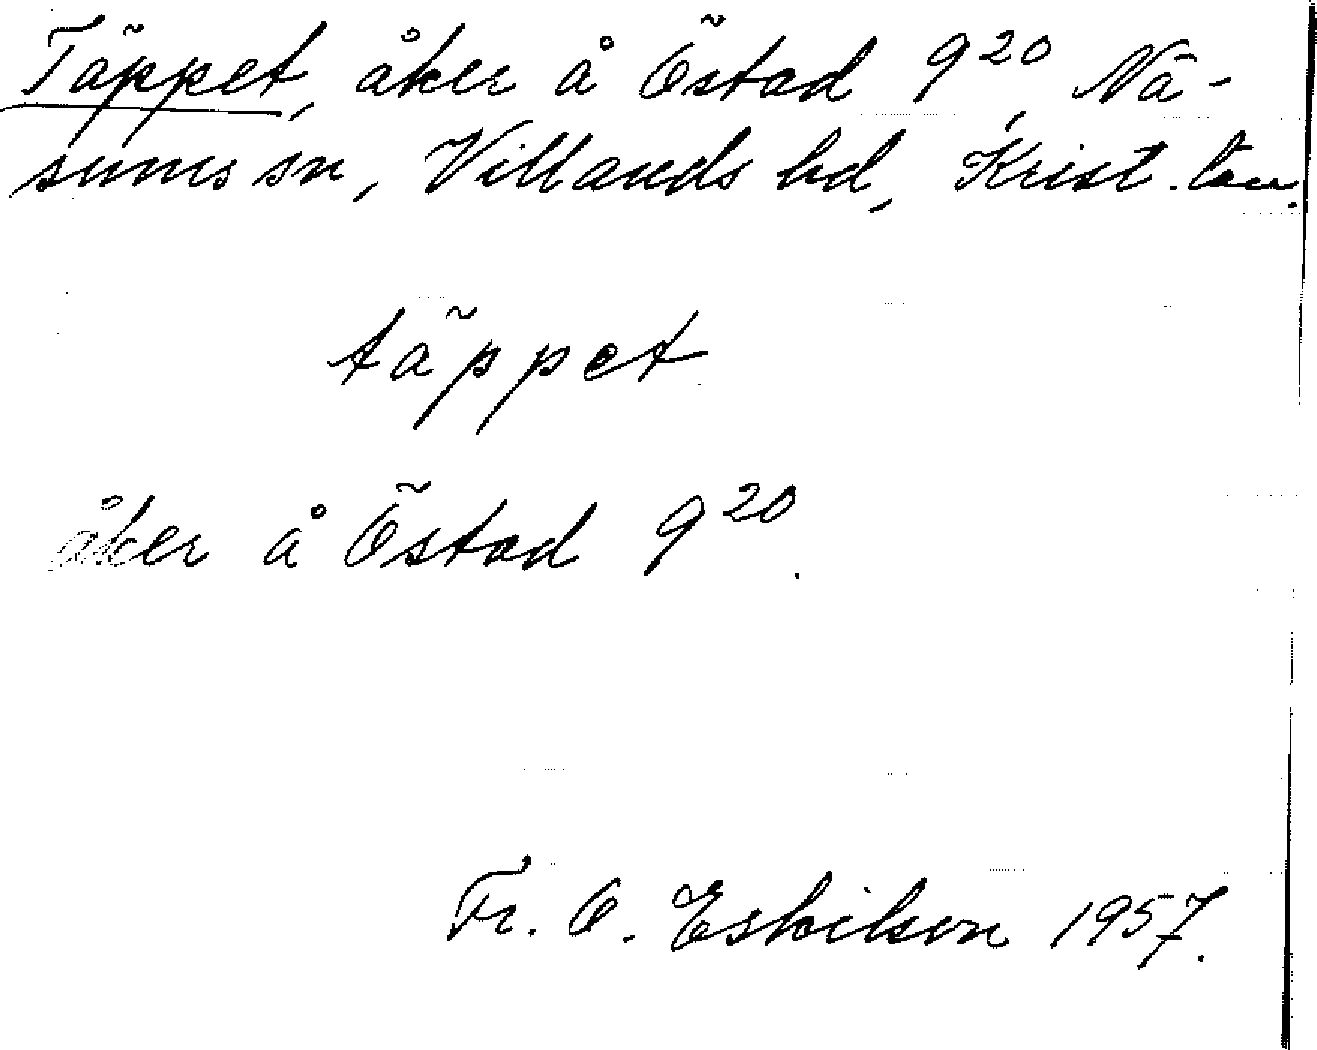 Täppet, åker å Östad 9²⁰, Nä-
sums sn, Villands hd, Krist. län.
täppet
åker å Östad 9²⁰.
Fr. O. Eskilson 1957.